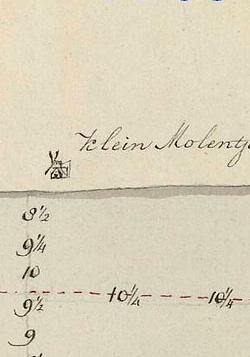 Klein Molentj
8½
9¼
10
9½ 10¼ 10¼
9